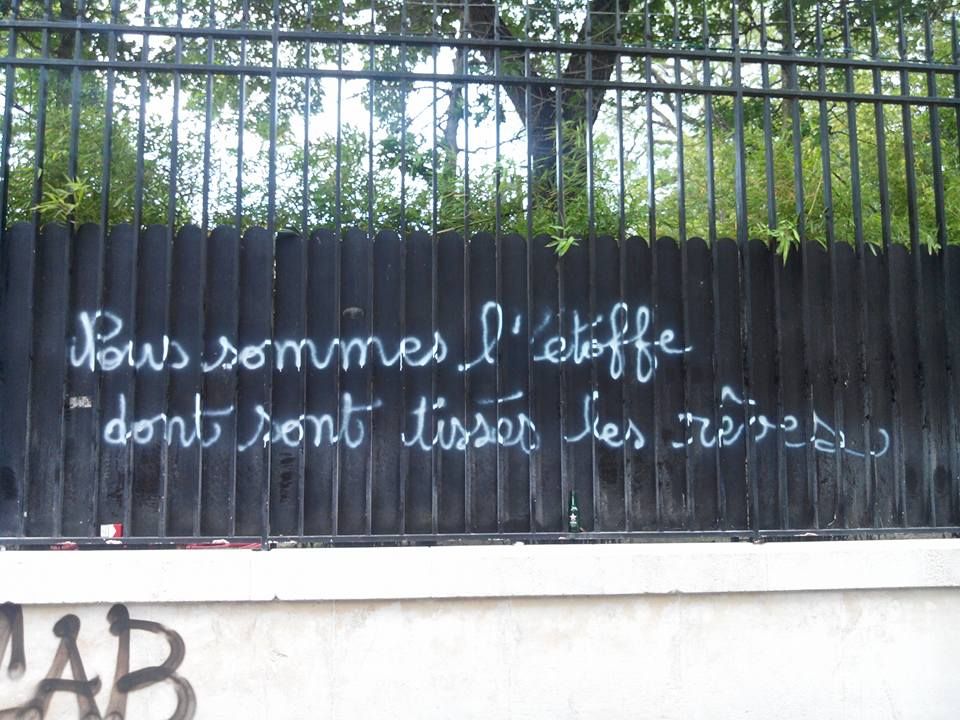 Nous sommes l'étoffe
dont sont tissés les rêves
CAB